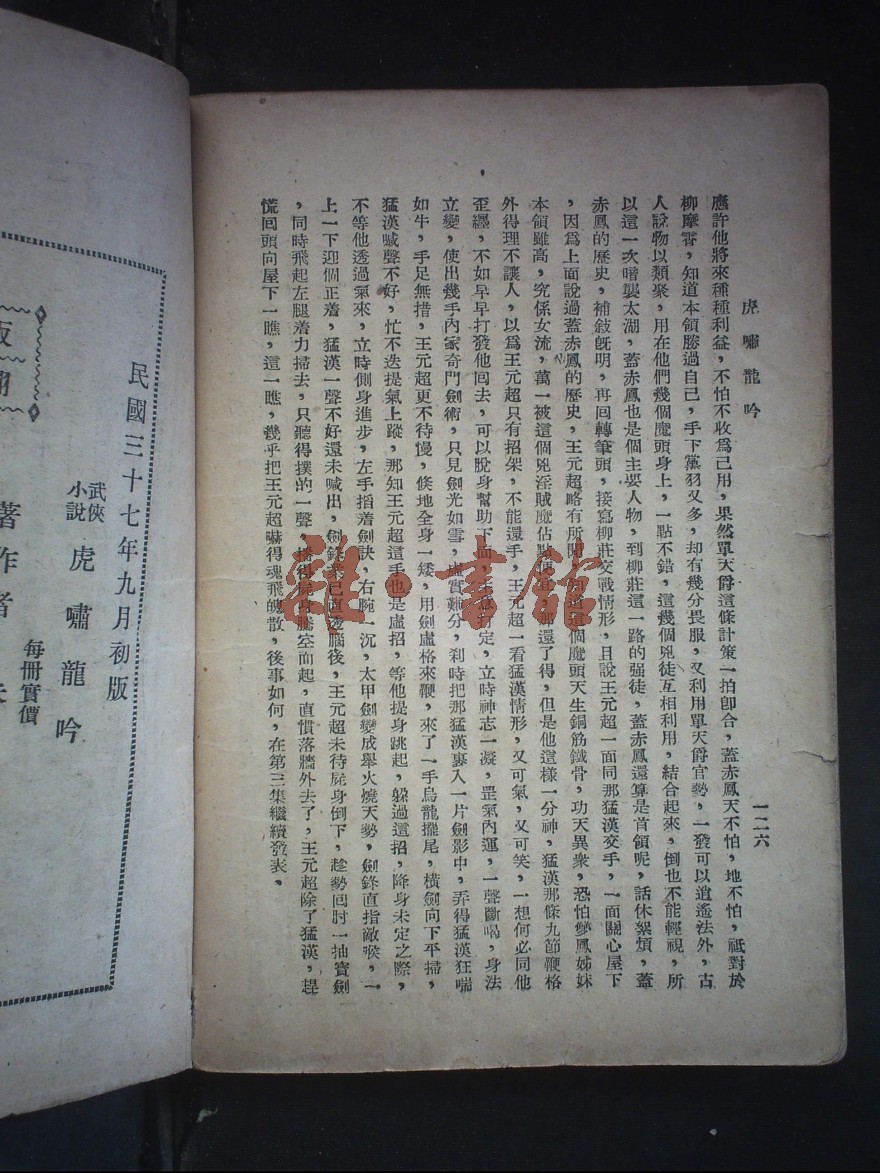 虎嘯龍吟
一二六
應許他將來種種利益，不怕不收爲己用，果然單天爵這條計策一拍卽合，蓋赤鳳天不怕，地不怕，祇對於
柳摩霄，知道本領勝過自己，手下黨羽又多，却有幾分畏服，又利用單天爵官勢，一發可以逍遙法外，古
人說物以類聚，用在他們幾個魔頭身上，一點不錯，這幾個兇徒互相利用，結合起來，倒也不能輕視，所
以這一次暗襲太湖，蓋赤鳳也是個主要人物，到柳莊這一路的强徒，蓋赤鳳還算是首領呢，話休絮煩，蓋
赤鳳的歷史，補敍旣明，再回轉筆頭，接寫柳莊交戰情形，且說王元超一面同那猛漢交手，一面關心屋下
，因爲上面說過蓋赤鳳的歷史，王元超略有所聞，知道這個魔頭天生銅筋鐵骨，功夫異衆，恐怕雙鳳姊妹
本領雖高，究係女流，萬一被這個兇淫賊魔佔點便宜，那還了得，但是他這樣一分神，猛漢那條九節鞭格
外得理不讓人，以爲王元超只有招架，不能還手，王元超一看猛漢情形，又可氣，又可笑，一想何必同他
歪纏，不如早早打發他回去，可以脫身幫助下面，主意打定，立時神志一凝，罡氣內運，一聲斷喝，身法
立變，使出幾手內家奇門劍術，只見劍光如雪，虛實難分，刹時把那猛漢裹入一片劍影中，弄得猛漢狂喘
如牛，手足無措，王元超更不待慢，倐地全身一矮，用劍虛格來鞭，來了一手烏龍擺尾，橫劍向下平掃，
猛漢喊聲不好，忙不迭提氣上蹤，那知王元超這手也是虛招，等他提身跳起，躲過這招，降身未定之際，
不等他透過氣來，立時側身進步，左手指着劍訣，右腕一沉，太甲劍變成舉火燒天勢，劍鋒直指敵喉，一
上一下迎個正着，猛漢一聲不好還未喊出，劍鋒業已直透腦後，王元超未待屍身倒下，趁勢回肘一抽寶劍
，同時飛起左腿着力掃去，只聽得撲的一聲，把屍身騰空而起，直慣落牆外去了，王元超除了猛漢，趕
慌回頭向屋下一瞧，這一瞧，幾乎把王元超嚇得魂飛魄散，後事如何，在第三集繼續發表。
民國三十七年九月初版
武俠小說 虎嘯龍吟
每冊實價
著作者
雜·書館